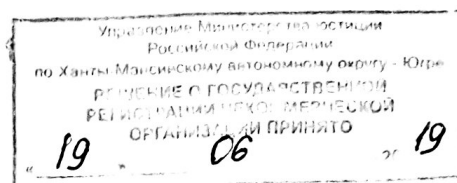 Управление Министерства юстиции
Российской Федерации
по Ханты-Мансийскому автономному округу - Югре
РЕШЕНИЕ О ГОСУДАРСТВЕННОЙ
РЕГИСТРАЦИИ НЕКОММЕРЧЕСКОЙ
ОРГАНИЗАЦИИ ПРИНЯТО
« 19 » 06 20 19